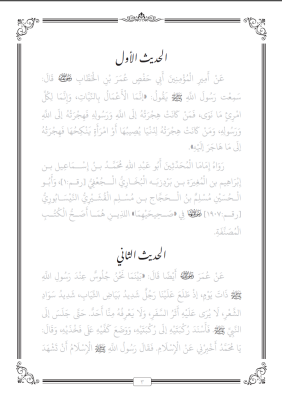 الحديث الأول
عَنْ أَمِيرِ الْمُؤْمِنِينَ أَبِي حَفْصٍ عُمَرَ بْنِ الْخَطَّابِ ﵁ قَالَ:
سَمِعْتُ رَسُولَ اللهِ ﷺ يَقُولُ: «إِنَّمَا الْأَعْمَالُ بِالنِّيَّاتِ، وَإِنَّمَا لِكُلِّ
امْرِئٍ مَا نَوَى، فَمَنْ كَانَتْ هِجْرَتُهُ إِلَى اللهِ وَرَسُولِهِ فَهِجْرَتُهُ إِلَى اللهِ
وَرَسُولِهِ، وَمَنْ كَانَتْ هِجْرَتُهُ لِدُنْيَا يُصِيبُهَا أَوْ امْرَأَةٍ يَنْكِحُهَا فَهِجْرَتُهُ
إِلَى مَا هَاجَرَ إِلَيْهِ».
رَوَاهُ إِمَامَا الْمُحَدِّثِينَ أَبُو عَبْدِ اللهِ مُحَمَّدُ بنُ إِسْمَاعِيل بن
إِبْرَاهِيم بن الْمُغِيرَة بن بَرْدِزبَه الْبُخَارِيُّ الْجُعْفِيُّ [رقم:١]، وَأَبُو
الْحُسَيْنِ مُسْلِمُ بنُ الْحَجَّاج بن مُسْلِم الْقُشَيْرِيُّ النَّيْسَابُورِيُّ
[رقم:١٩٠٧] ﵄ فِي «صَحِيحَيْهِمَا» اللذَينِ هُمَا أَصَحُّ الْكُتُبِ
الْمُصَنَّفَةِ.
الحديث الثاني
عَنْ عُمَرَ ﵁ أَيْضًا قَالَ: «بَيْنَمَا نَحْنُ جُلُوسٌ عِنْدَ رَسُولِ اللهِ
ﷺ ذَاتَ يَوْمٍ، إذْ طَلَعَ عَلَيْنَا رَجُلٌ شَدِيدُ بَيَاضِ الثِّيَابِ، شَدِيدُ سَوَادِ
الشَّعْرِ، لَا يُرَى عَلَيْهِ أَثَرُ السَّفَرِ، وَلَا يَعْرِفُهُ مِنَّا أَحَدٌ. حَتَّى جَلَسَ إلَى
النَّبِيِّ ﷺ فَأَسْنَدَ رُكْبَتَيْهِ إلَى رُكْبَتَيْهِ، وَوَضَعَ كَفَّيْهِ عَلَى فَخْذَيْهِ، وَقَالَ:
يَا مُحَمَّدُ أَخْبِرْنِي عَنْ الْإِسْلَامِ. فَقَالَ رَسُولُ اللهِ ﷺ الْإِسْلَامُ أَنْ تَشْهَدَ